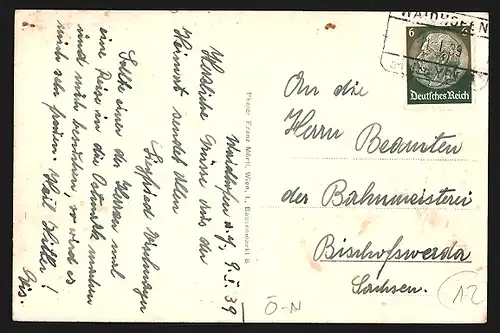 Waidhofen a. Y. 9. I. 39
Herzliche Grüsse aus der
Heimat sendet Allen
Siegfried
Sollte einer der Herren mal
eine Reise in die Ostmark machen
und mich besuchen, so wird es
mich sehr freuen. Heil Hitler!
Photo: Franz Mörtl, Wien, I., Bauernmarkt 8
WAIDHOFEN
6
Deutsches Reich
An die
Herrn Beamten
der Bahnmeisterei
Bischofswerda
Sachsen.
Ö-N
12